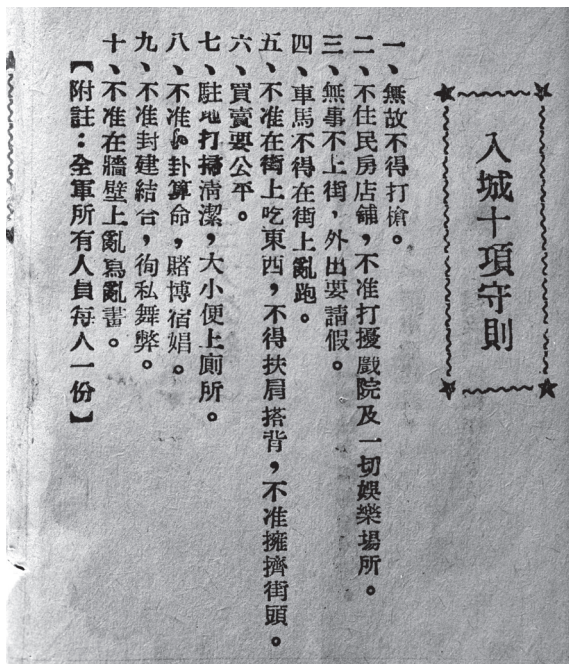 入城十項守則
一、無故不得打槍。
二、不住民房店鋪，不准打擾戲院及一切娛樂場所。
三、無事不上街，外出要請假。
四、車馬不得在街上亂跑。
五、不准在街上吃東西，不得扶肩搭背，不准擁擠街頭。
六、買賣要公平。
七、駐地打掃清潔，大小便上廁所。
八、不准卦算命，賭博宿娼。
九、不准封建結合，徇私舞弊。
十、不准在牆壁上亂寫亂畫。
【附註：全軍所有人員每人一份】